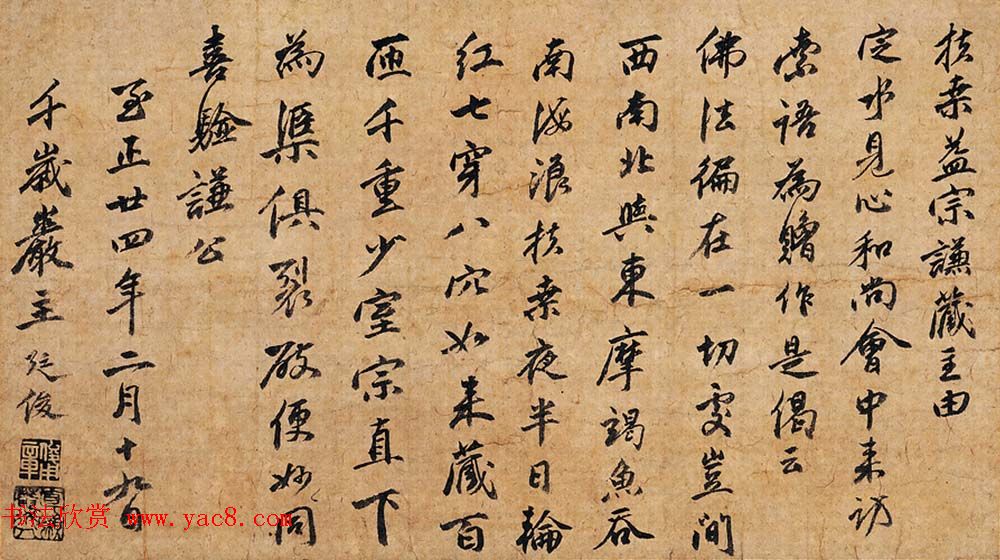 扶桒益宗謙藏主由
定水見心和尚會中来訪
索語為贈作是偈云
佛法徧在一切處豈間
西南北與東摩竭魚吞
南海浪扶桒夜半日輪
红七穿八穴如来藏百
匝千重少室宗直下
為渠俱裂破便好同
喜驗謙公
至正廿四年二月十九日
千嵗巖主
书法欣赏 www.yac8.com